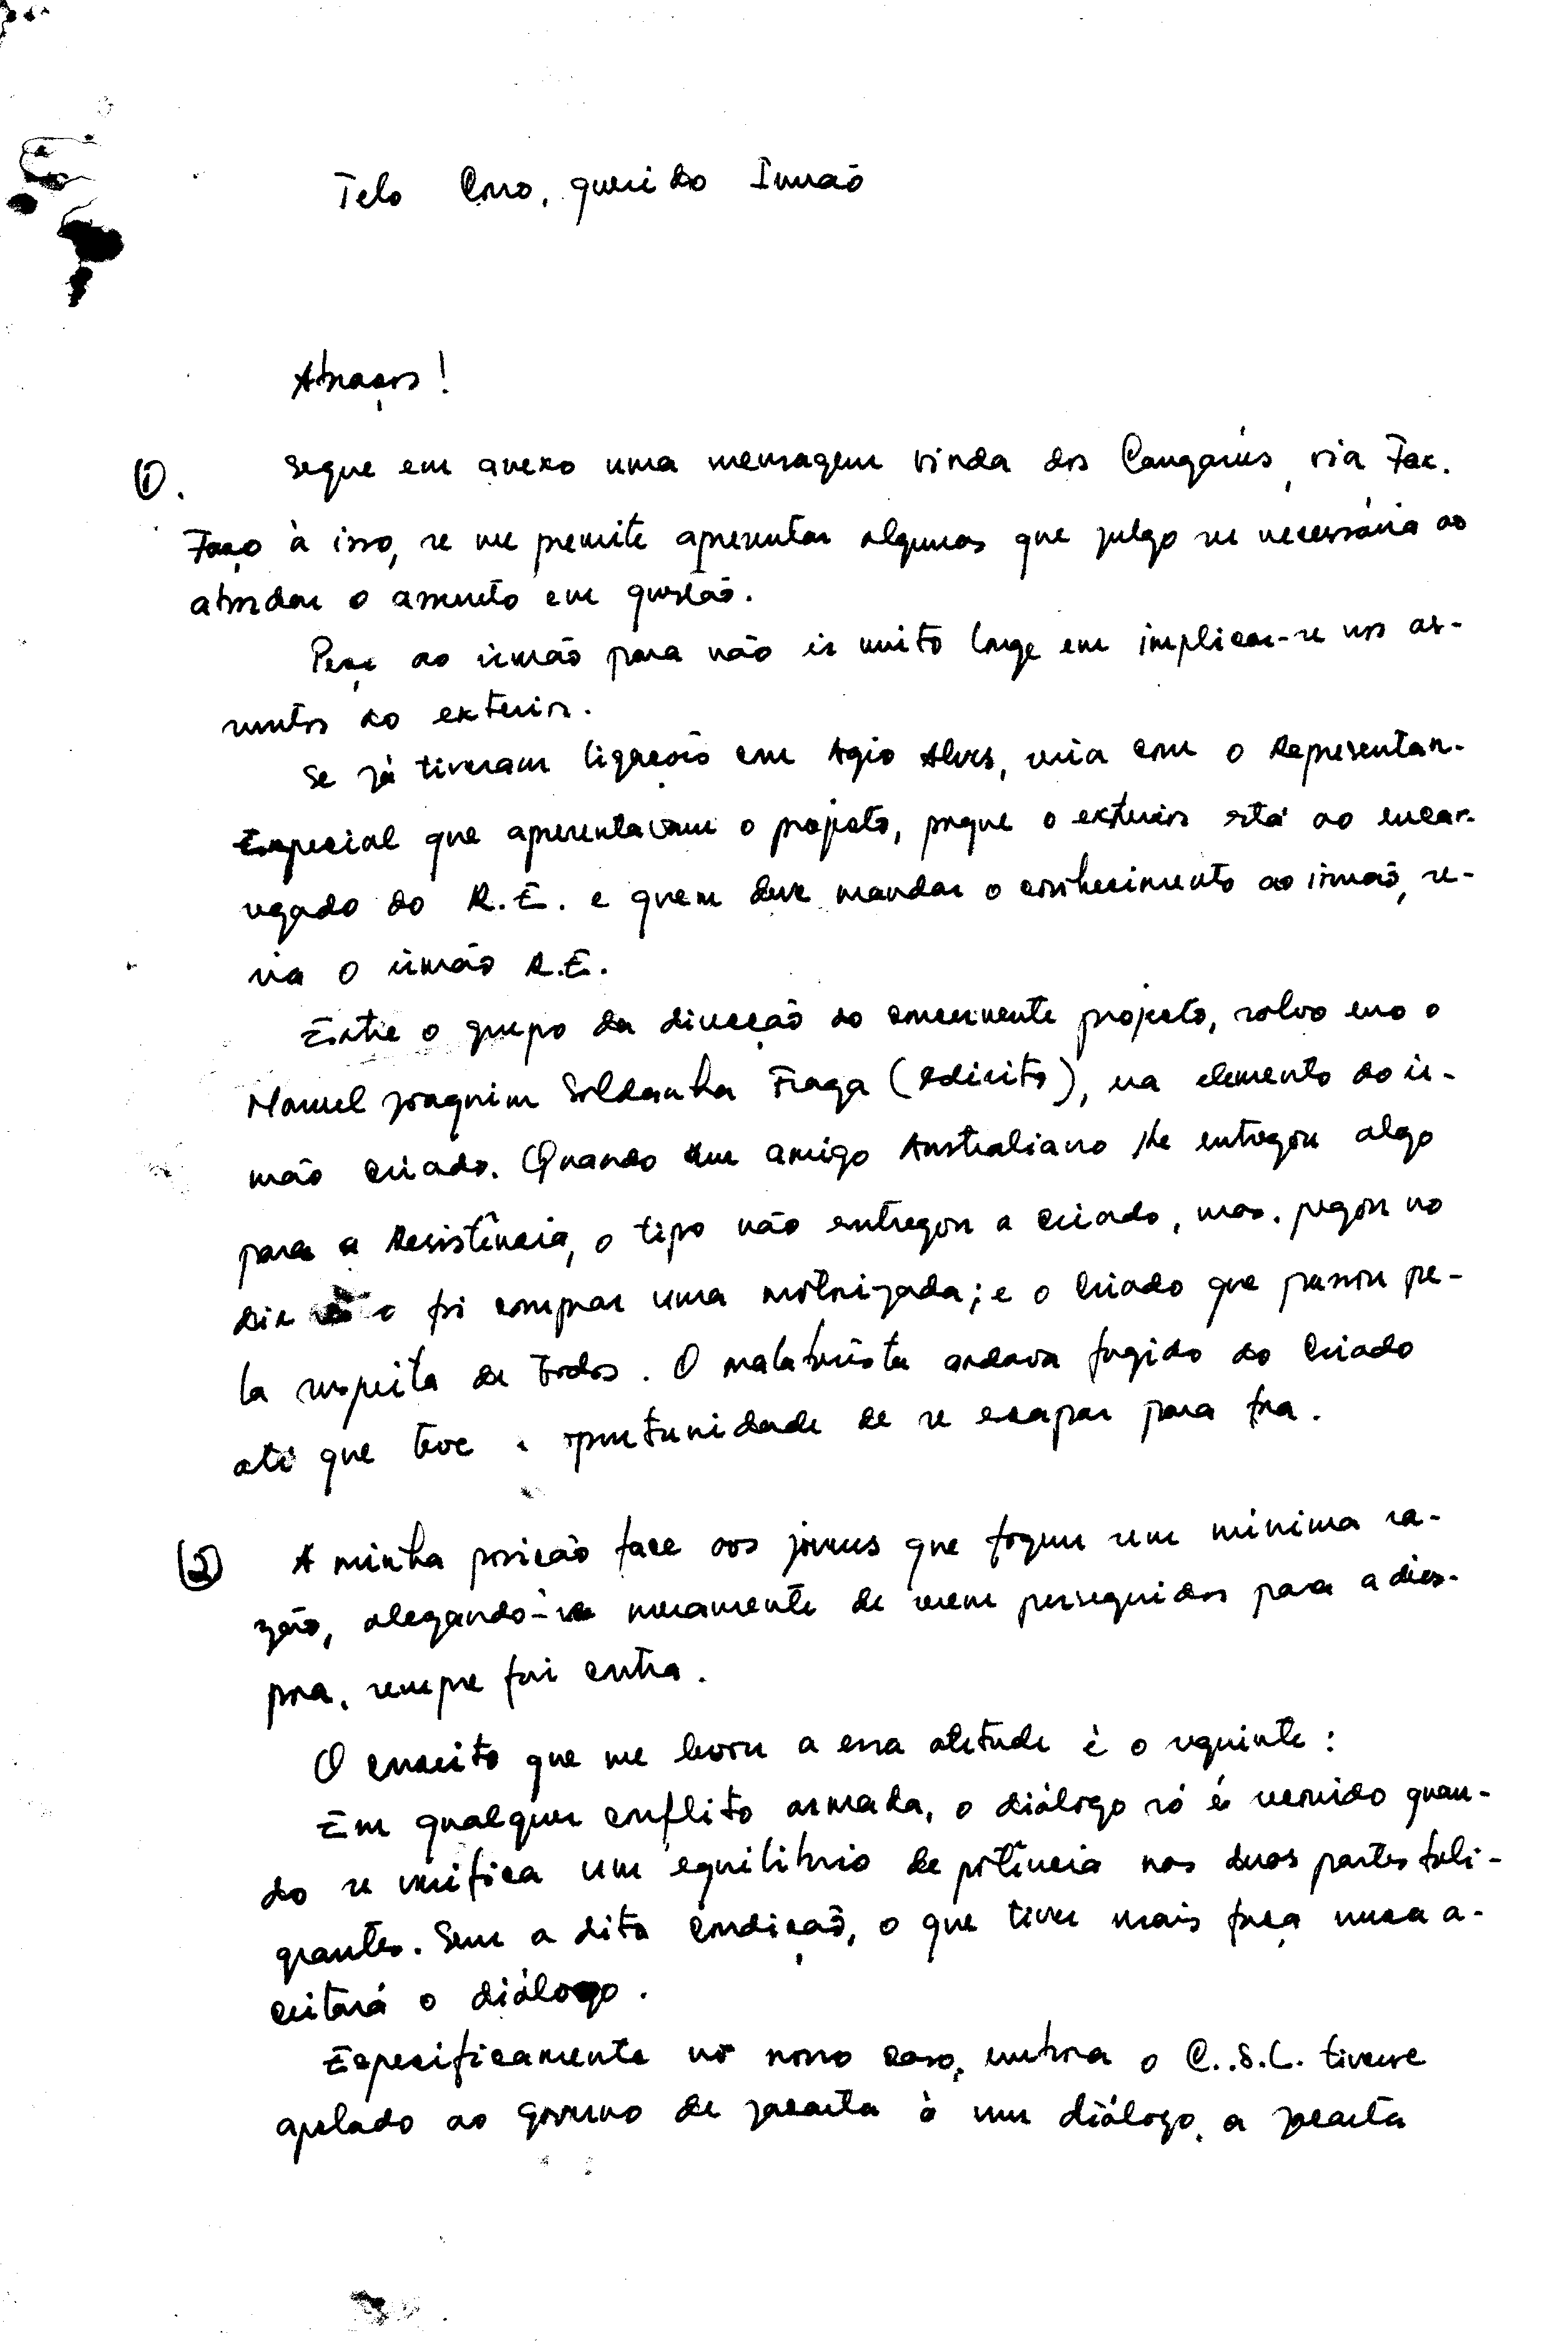 Telo Cono, querido Irmão
Abraços!
①. Segue em anexo uma mensagem vinda dos Cangarús, via Fax.
Faço à isso, se me premite apresentar algumas que julgo ser necessária ao
abordar o assunto em questão.
Peço ao irmão para não ir muito longe em implicar-se nos as-
suntos do exterior.
Se já tiveram ligação com Agio Alves, seria com o Representan.
Especial que apresentavam o projeto, porque o exterior está ao encar-
regado do R.E. e quem deve mandar o conhecimento ao irmão, se-
ria o irmão R.E.
Entre o grupo da direcção do concernente projeto, salvo erro o
Manuel Joaquim Soldanha Fraga (edicito), era elemento do ir-
mão Criado. Quando um amigo Australiano lhe entregou algo
para a Resistência, o tipo não entregou a Criado, mas, pegou no
din e foi comprar uma motorizada; e o Criado que passou pe-
la suspeita de todos. O malabrista andava fugido do Criado
até que teve a oportunidade de se escapar para fora.
② A minha posição face aos jovens que fogem sem minima ra-
zão, alegando-se meramente de serem perseguidos para a dias-
pora, sempre foi contra.
O conceito que me levou a essa atetude é o seguinte:
Em qualquer conflito armada, o diálogo só é servido quan-
do se verifica um equilibrio de potência nas duas partes beli-
grantes. Sem a dita condição, o que tiver mais força nunca a-
ceitará o diálogo.
Especificamente no nosso caso, embora o C.S.L. tivesse
apelado ao governo de Jacarta à um diálogo, a Jacarta